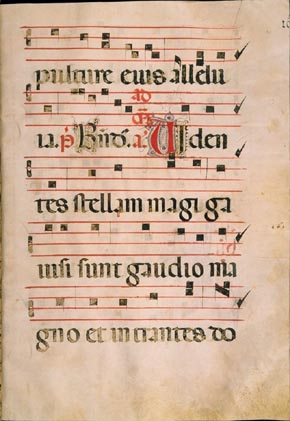 pulture eius allelu
ad
ia. p̄ Bnd̄. a. Uiden
tes stellam magi ga
uisi sunt gaudio ma
gno et intrantes do